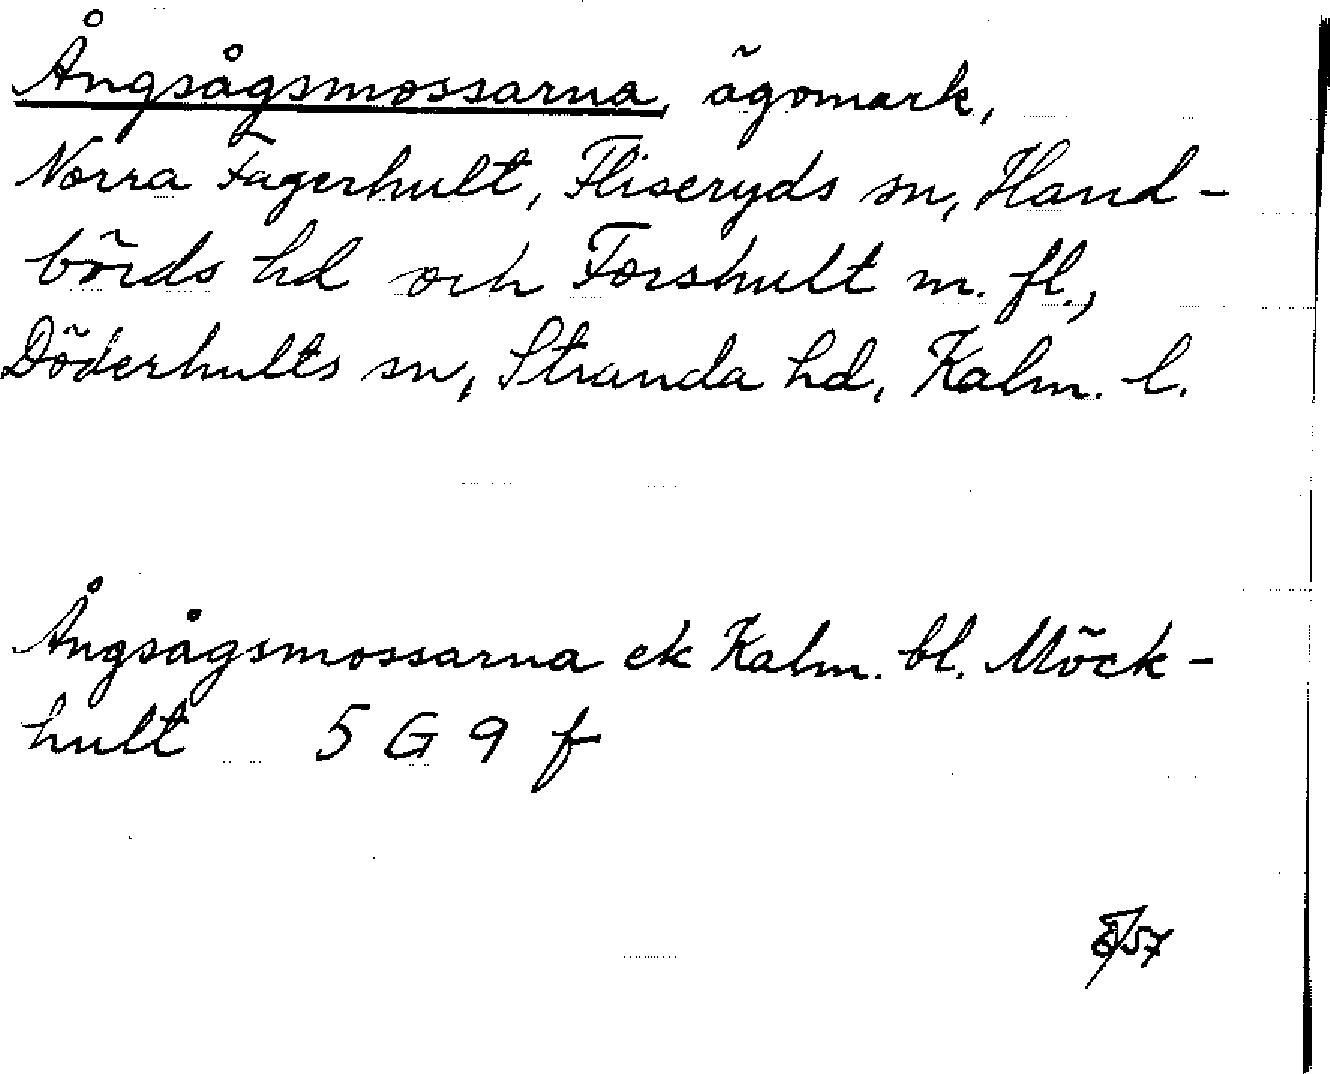 Ångsågsmossarna, ägomark,
Norra Fagerhult, Fliseryds sn, Hand-
börds hd och Forshult m. fl.,
Döderhults sn, Stranda hd, Kalm. l.
Ångsågsmossarna ek Kalm. bl. Möck-
hult 5 G 9 f